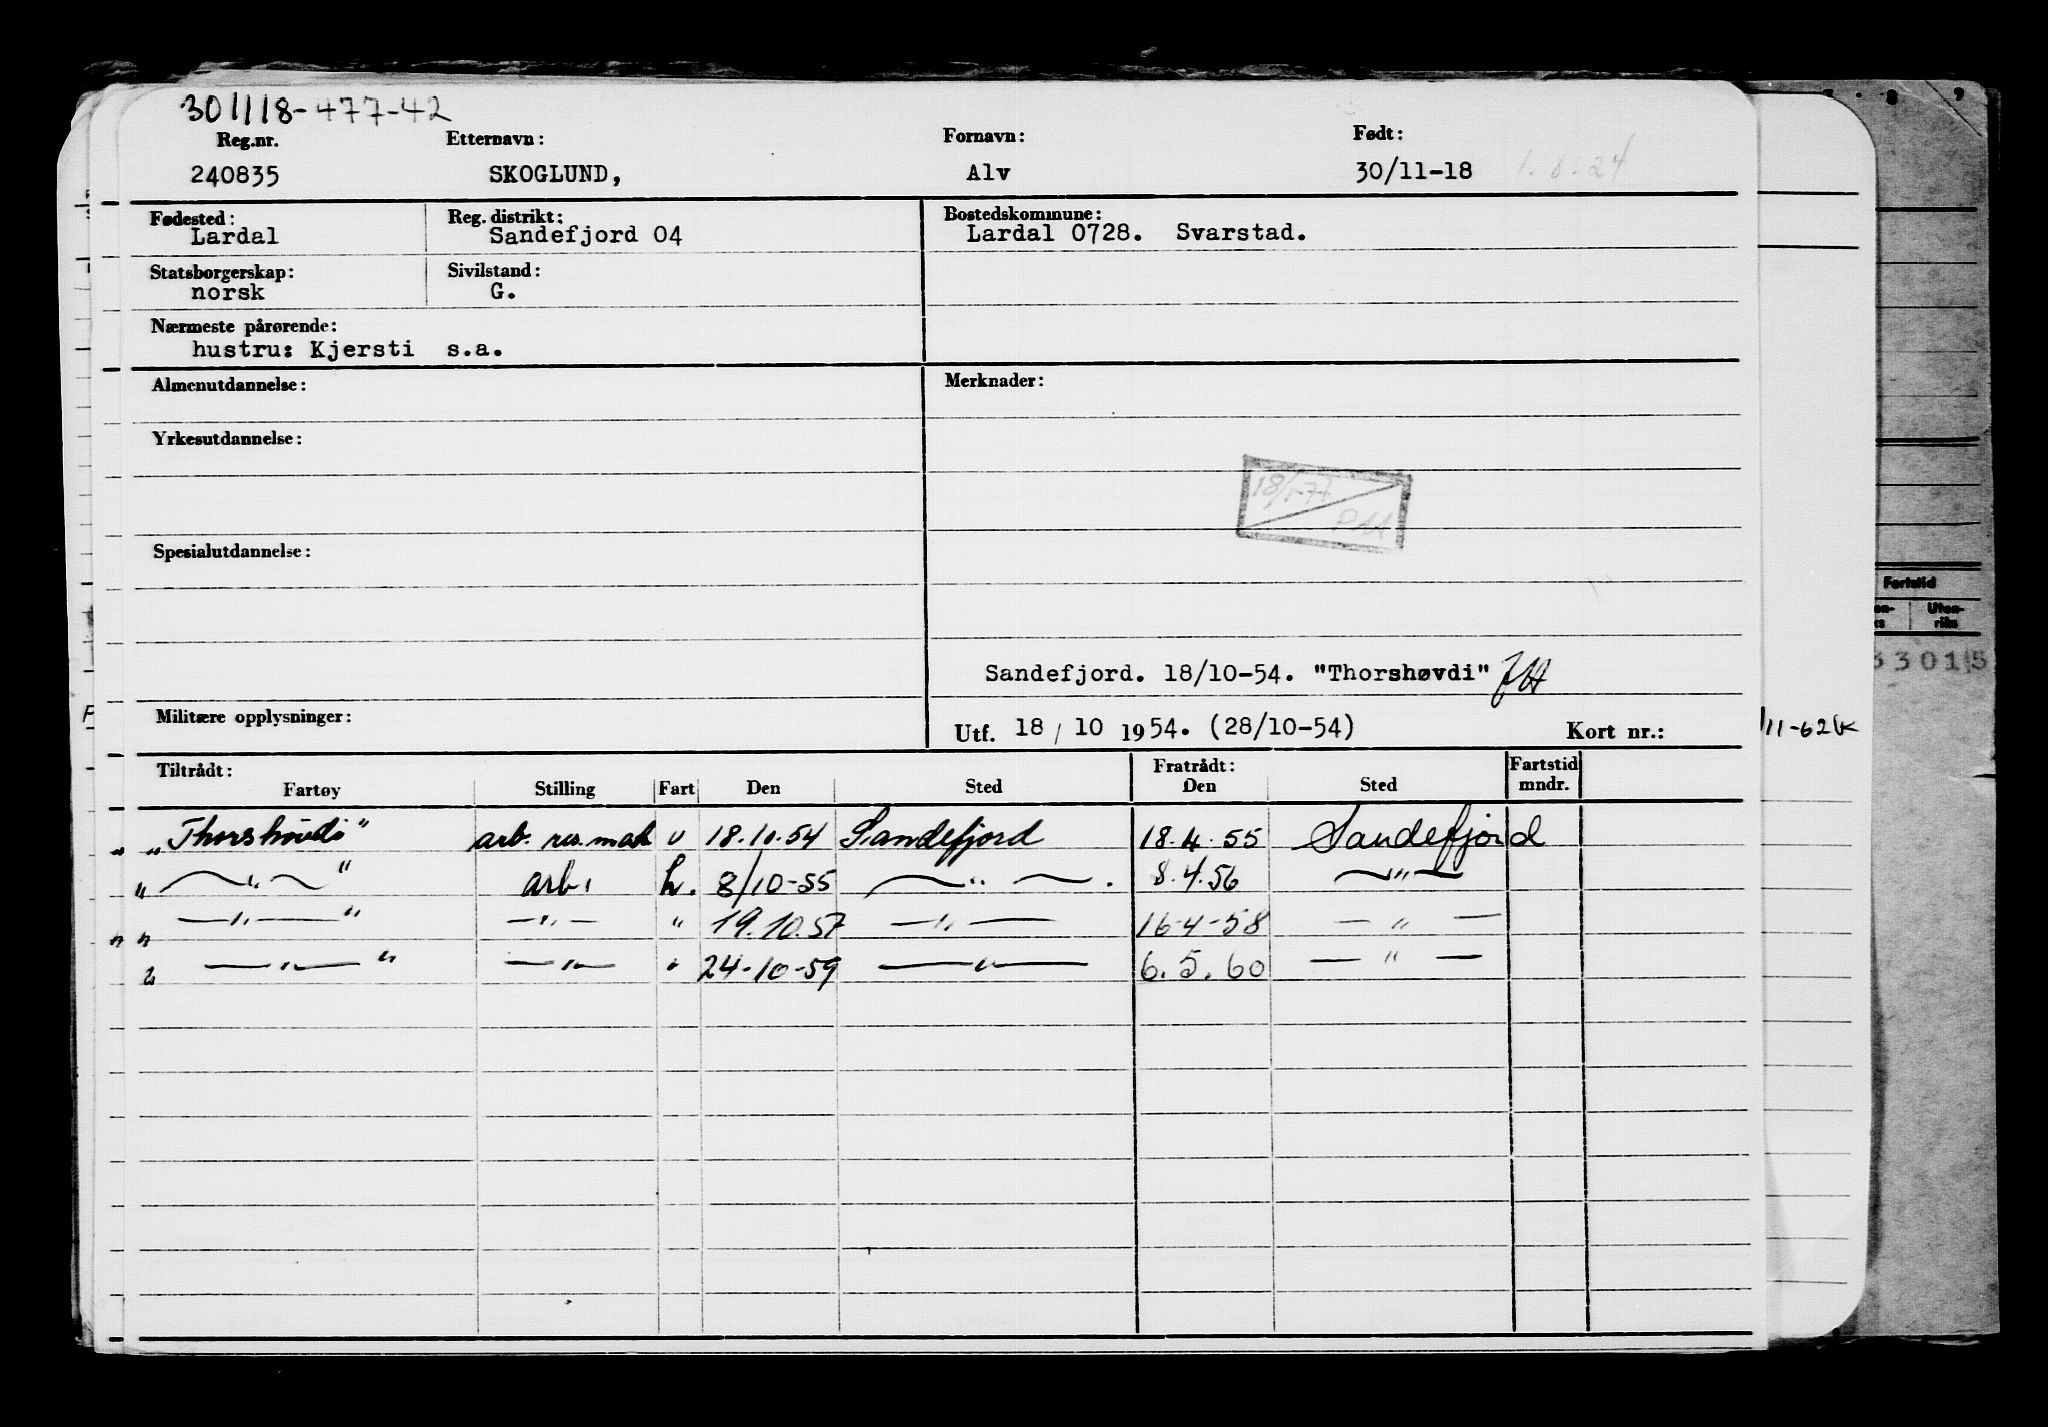 301118-477-42
Reg.nr. Etternavn: Fornavn: Født:
240835 SKOGLUND, Alv 30/11-18
Fødested: Reg. distrikt: Bostedskommune:
Lardal Sandefjord 04 Lardal 0728. Svarstad.
Statsborgerskap: Sivilstand:
norsk G.
Nærmeste pårørende:
hustru: Kjersti s.a.
Almenutdannelse: Merknader:
Yrkesutdannelse:
18/1-77
Spesialutdannelse:
Fartstid
Uten-
riks
Sandefjord. 18/10-54. "Thorshøvdi"
33015
Militære opplysninger: Utf. 18/10 1954. (28/10-54) Kort nr.:
11-62
Tiltrådt: Fratrådt: Fartstid
Fartøy Stilling Fart Den Sted Den Sted mndr.
„Thorshövdi" arb. res. mask u 18.10.54 Sandefjord 18.4.55 Sandefjord
" —"— " arb. h. 8/10-55 —"— . 8.4.56 —"—
" —"— " —"— " 19.10.57 —"— 16-4-58 —"—
" —"— " —"— " 24-10-59 —"— 6.5.60 —"—